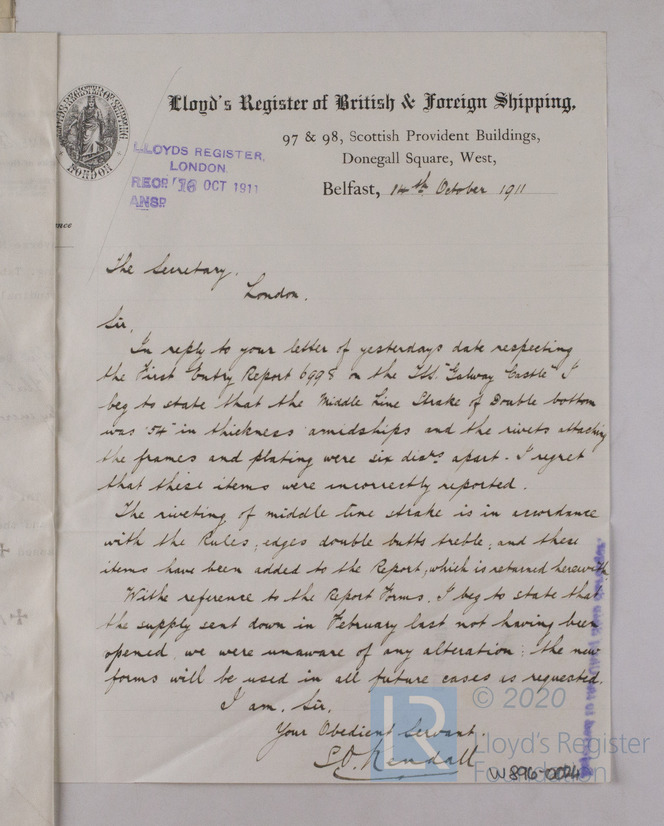 LLOYD'S REGISTER OF SHIPPING
LONDON
Lloyd's Register of British & Foreign Shipping,
97 & 98, Scottish Provident Buildings,
Donegall Square, West,
LLOYDS REGISTER,
LONDON.
RECD. 16 OCT 1911
ANSD.
Belfast, 14th October 1911
nce
The Secretary.
London.
Sir,
In reply to your letter of yesterdays date respecting
the First Entry Report 6998 on the "Galway Castle" I
beg to state that the Middle Line Strake of Double bottom
was .54" in thickness amidships and the rivets attaching
the frames and plating were six diars apart. I regret
that these items were incorrectly reported.
The riveting of middle line strake is in accordance
with the Rules, edges double butts treble, and these
items have been added to the Report, which is returned herewith
Withe reference to the Report Forms. I beg to state that
the supply sent down in February last not having been
opened we were unaware of any alteration; the new
forms will be used in all future cases as requested.
I am, Sir,
Your Obedient Servant.
Kendall
LR
© 2020
Lloyd's Register
Foundation
W896-0024